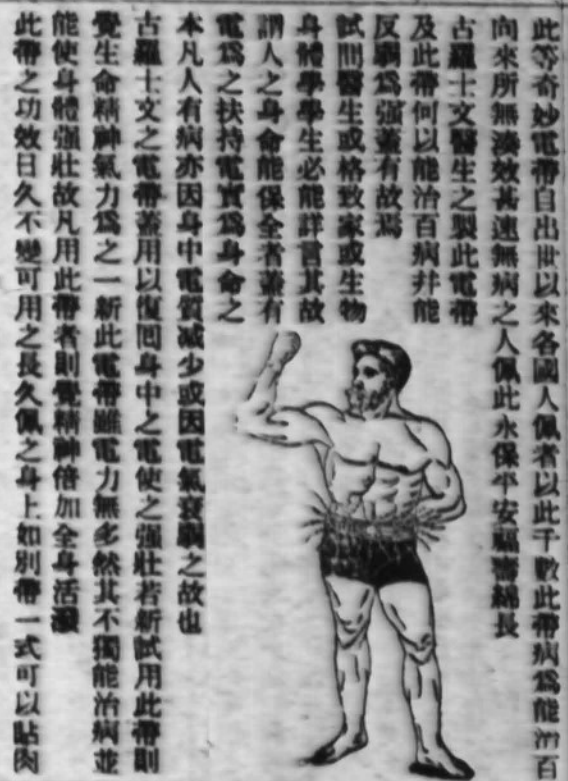 此等奇妙電帶自出世以來各國人佩者以此千數此帶病爲能治百
向來所無湊效甚速無病之人佩此永保平安福壽綿長
古羅士文醫生之製此電帶
及此帶何以能治百病幷能
反弱爲强蓋有故焉
試問醫生或格致家或生物
身體學學生必能詳言其故
謂人之身命能保全者蓋有
電爲之扶持電實爲身命之
本凡人有病亦因身中電質减少或因電氣衰弱之故也
古羅士文之電帶蓋用以復囘身中之電使之强壯若新試用此帶則
覺生命精神氣力爲之一新此電帶雖電力無多然其不獨能治病並
能使身體强壯故凡用此帶者則覺精神倍加全身活潑
此帶之功效日久不變可用之長久佩之身上如別帶一式可以貼肉